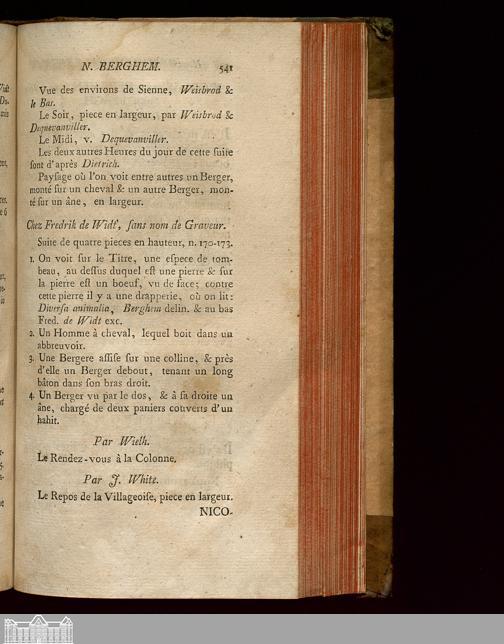 N. BERGHEM. 541
Vue des environs de Sienne, Weisbrod &
le Bas.
Le Soir, piece en largeur, par Weisbrod &
Dequevanviller.
Le Midi, v. Dequevanviller.
Les deux autres Heures du jour de cette suite
sont d'après Dietrich.
Paysage où l'on voit entre autres un Berger,
monté sur un cheval & un autre Berger, mon-
té sur un âne, en largeur.
Chez Fredrik de Widt, sans nom de Graveur.
Suite de quatre pieces en hauteur, n. 170-173.
1. On voit sur le Titre, une espece de tom-
beau, au dessus duquel est une pierre & sur
la pierre est un boeuf, vu de face; contre
cette pierre il y a une drapperie, où on lit:
Diversa animalia, Berghem delin. & au bas
Fred. de Widt exc.
2. Un Homme à cheval, lequel boit dans un
abbreuvoir.
3. Une Bergere assise sur une colline, & près
d'elle un Berger debout, tenant un long
bâton dans son bras droit.
4. Un Berger vu par le dos, & à sa droite un
âne, chargé de deux paniers couverts d'un
habit.
Par Wielh.
Le Rendez-vous à la Colonne.
Par J. White.
Le Repos de la Villageoise, piece en largeur.
NICO-